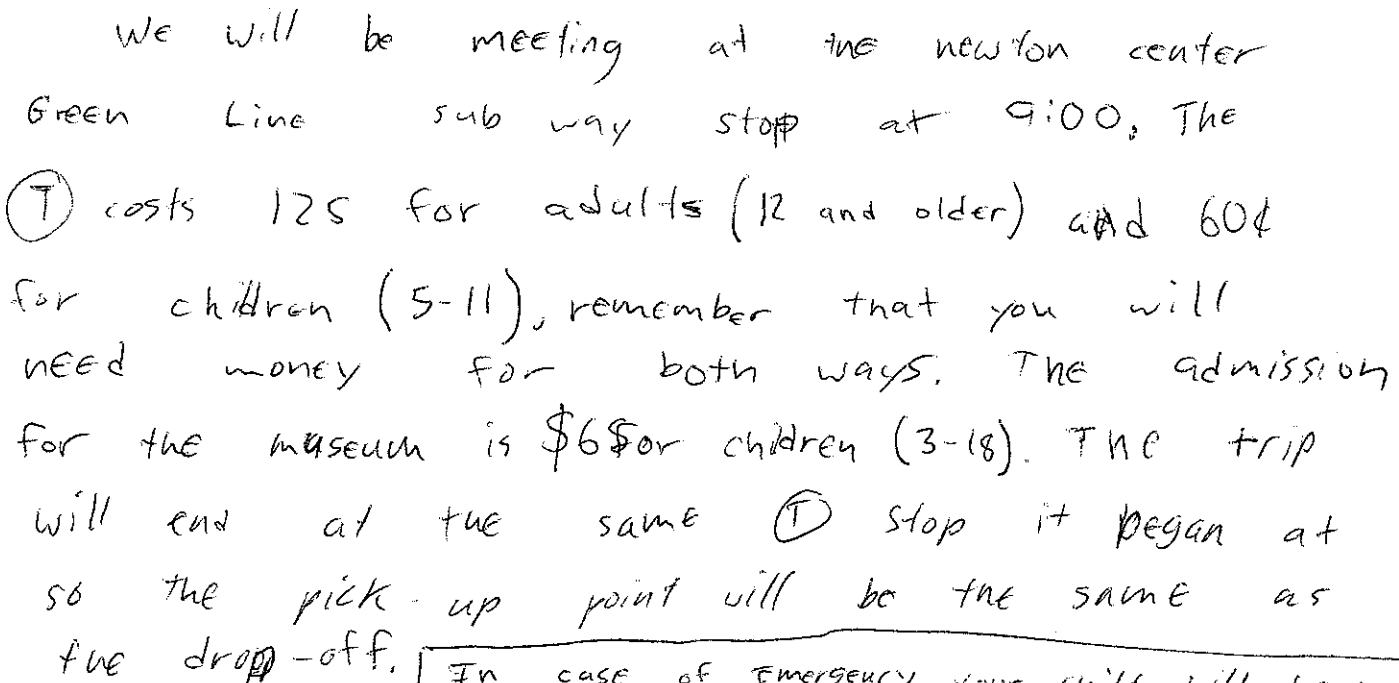 We will be meeting at the newton center
Green Line sub way stop at 9:00. The
Ⓣ costs 125 for adults (12 and older) and 60¢
for children (5-11), remember that you will
need money for both ways. The admission
for the museum is $6 for children (3-18). The trip
will end at the same Ⓣ stop it began at
so the pick-up point will be the same as
the drop-off.
In case of Emergency your child will